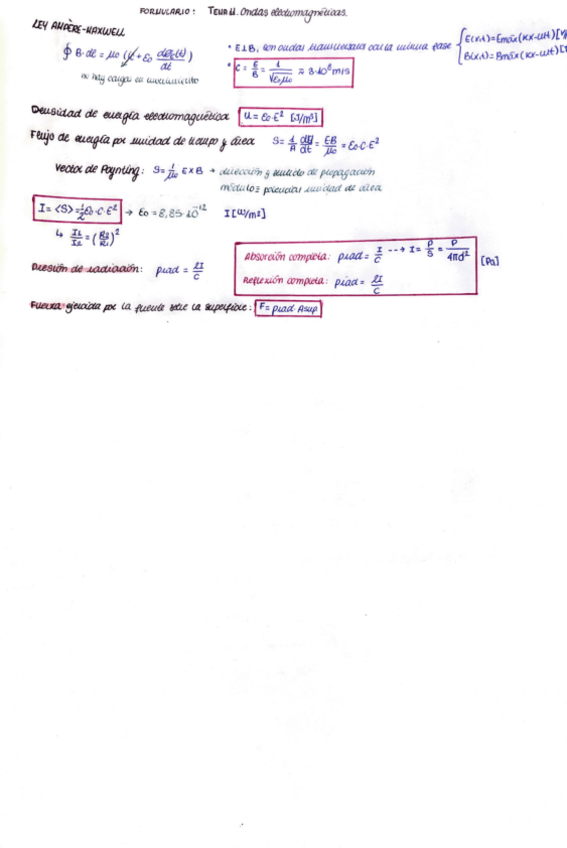 FORMULARIO: TEMA 11. Ondas electromagnéticas.
LEY AMPÈRE-MAXWELL
∮ B·dl = μ₀ (i + ε₀ dΦ_E(t)/dt)
no hay cargas en movimiento
• E⊥B, son ondas transversales con la misma fase { E(x,t)=Emáx(kx-ωt)
B(x,t)=Bmáx(kx-ωt)
• C = E/B = 1/√ε₀μ₀ ≈ 3·10⁸ m/s
Densidad de energía electromagnética u = ε₀·E² [J/m³]
Flujo de energía por unidad de tiempo y área S = 1/A dU/dt = EB/μ₀ = ε₀·C·E²
Vector de Poynting: S = 1/μ₀ E×B → dirección y sentido de propagación
módulo = potencia/unidad de área
I = <S> = 1/2 ε₀·C·E² → ε₀ = 8,85·10⁻¹² I [W/m²]
↳ I₁/I₂ = (R₂/R₁)²
Presión de radiación: prad = 2I/C
Absorción completa: prad = I/C ---> I = P/S = P/4πd² [Pa]
Reflexión completa: prad = 2I/C
Fuerza ejercida por la fuente sobre la superficie: F = prad·Asup